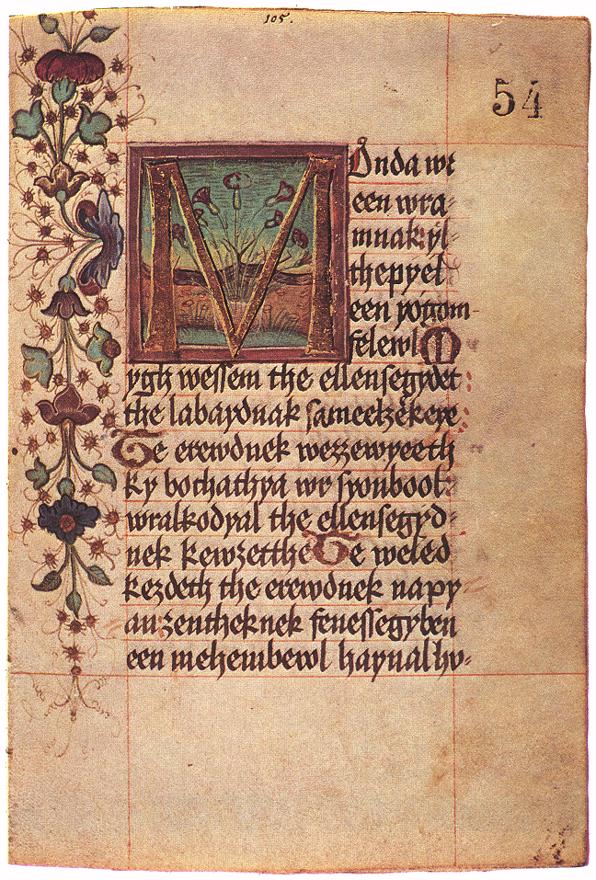 105.
54
MOnda wr
een wra-
mnak: yl-
thepyel
een yogom-
felewl M
ygh wessem the ellensegydet:
the labaydnak sameelzekere:
Te erewdnek wezzewyeeth
ky bochathya wr syonbool:
wralkodyal the ellensegyd-
nek kewzetthe Te weled
kezdeth the erewdnek napy-
an: zenthek nek fenessegyben
een mehembewl haynal hv-